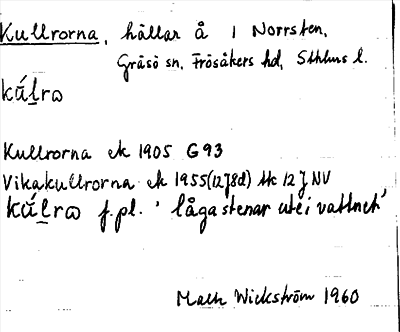 Kullrorna, hällar å 1 Norrsten,
Gräsö sn, Frösåkers hd, Sthlms l.
kúl̠rω
Kullrorna ek 1905 G93
Vikakullrorna ek 1955 (12J8d) tk 12 J NV
kúl̠rω f.pl. 'låga stenar ute i vattnet'
Math Wickström 1960